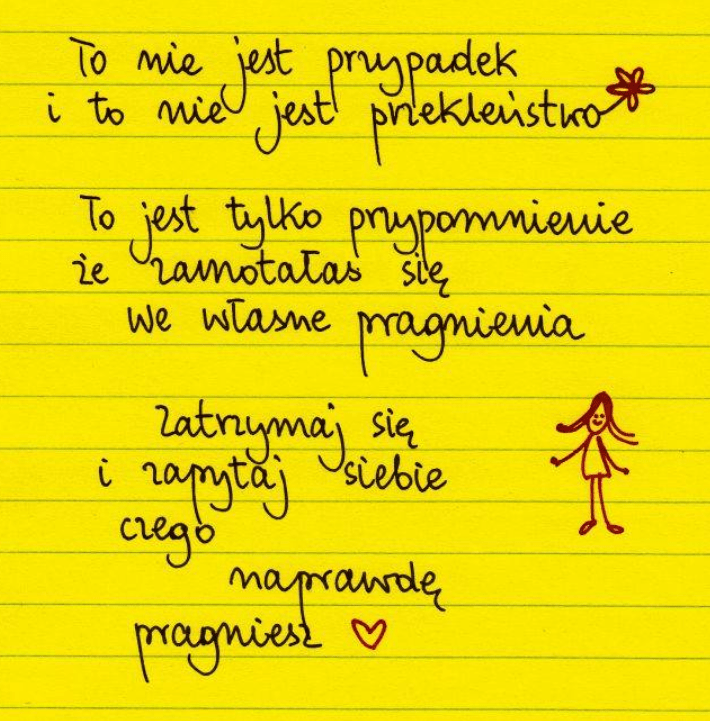 To nie jest przypadek
i to nie jest przekleństwo
To jest tylko przypomnienie
że zamotałaś się
we własne pragnienia
zatrzymaj się
i zapytaj siebie
czego
naprawdę
pragniesz